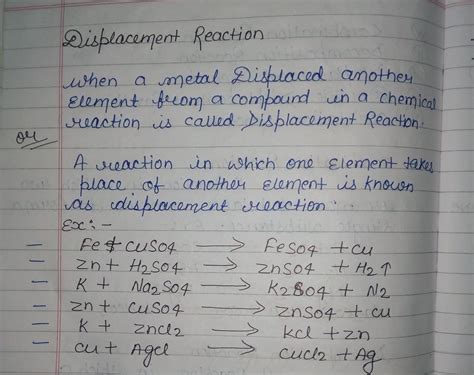 Displacement Reaction
when a metal Displaced another
Element from a compound in a chemical
reaction is called Displacement Reaction.
or
A reaction in which one Element takes
place of another element is known
as displacement reaction.
Ex:-
- Fe + CuSO4 → FeSO4 + Cu
- Zn + H2SO4 → ZnSO4 + H2↑
- K + Na2SO4 → K2SO4 + N2
- Zn + CuSO4 → ZnSO4 + Cu
- K + ZnCl2 → KCl + Zn
- Cu + AgCl → CuCl2 + Ag